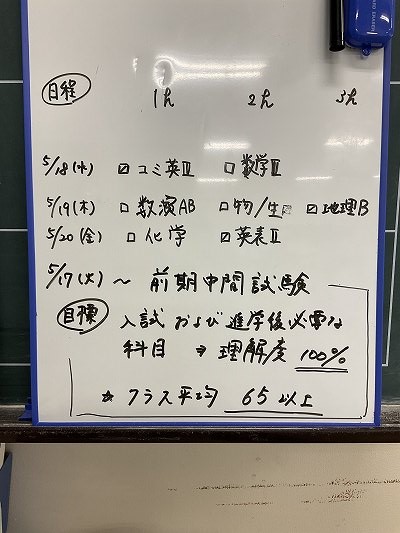 日程 1h 2h 3h
5/18(水) ☑コミ英Ⅲ □数学Ⅲ
5/19(木) □数演AB □物/生 ☑地理B
5/20(金) □化学 ☑英表Ⅱ
5/17(火)~前期中間試験
目標 入試および進学後必要な
科目 → 理解度 100%
☆クラス平均 65以上